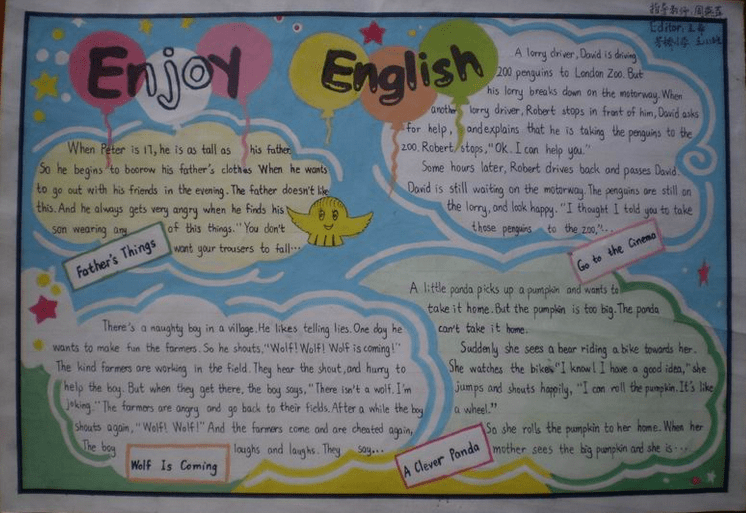 Enjoy English
指导教师:周燕萍
Editor:王
When Peter is 17, he is as tall as his father.
So he begins to boorow his father's clothes When he wants
to go out with his friends in the evening. The father doesn't like
this. And he always gets very angry when he finds his
son wearing any of this things. "You don't
want your trousers to fall...
Father's Things
A lorry driver, David is driving
200 penguins to London Zoo. But
his lorry breaks down on the motorway. When
another lorry driver, Robert stops in front of him, David asks
for help, and explains that he is taking the penguins to the
200. Robert stops, "OK. I can help you."
Some hours later, Robert drives back and passes David.
David is still waiting on the motorway. The penguins are still on
the lorry, and look happy. "I thought I told you to take
those penguins to the 200,"...
Go to the Cinema
There's a naughty boy in a village. He likes telling lies. One day he
wants to make fun the farmers. So he shouts, "Wolf! Wolf! Wolf is coming!"
The kind farmers are working in the field. They hear the shout, and hurry to
help the boy. But when they get there, the boy says, "There isn't a wolf. I'm
joking." The farmers are angry and go back to their fields. After a while the boy
shouts again, "Wolf! Wolf!" And the farmers come and are cheated again,
The boy laughs and laughs. They say...
Wolf Is Coming
A little panda picks up a pumpkin and wants to
take it home. But the pumpkin is too big. The panda
can't take it home.
Suddenly she sees a bear riding a bike towards her.
She watches the bike. "I know! I have a good idea," she
jumps and shouts happily, "I can roll the pumpkin. It's like
a wheel."
So she rolls the pumpkin to her home. When her
mother sees the big pumpkin and she is...
A Clever Panda